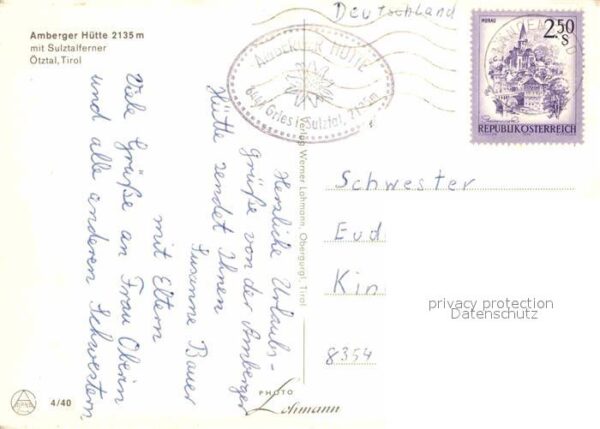 Amberger Hütte 2135 m
mit Sulztalferner
Ötztal, Tirol
Deutschland
AMBERGER HÜTTE
6444 Gries i. Sulztal, 2135m
MURAU
2.50
S
REPUBLIK ÖSTERREICH
Herzliche Urlaubs-
grüße von der Amberger
Hütte sendet Ihnen
Susanne Bauer
mit Eltern
Viele Grüße an Frau Oberin
und alle anderen Schwestern
Verlag Werner Lohmann, Obergurgl, Tirol
Schwester
Eud
Kin
8354
privacy protection
Datenschutz
PHOTO
Lohmann
4/40